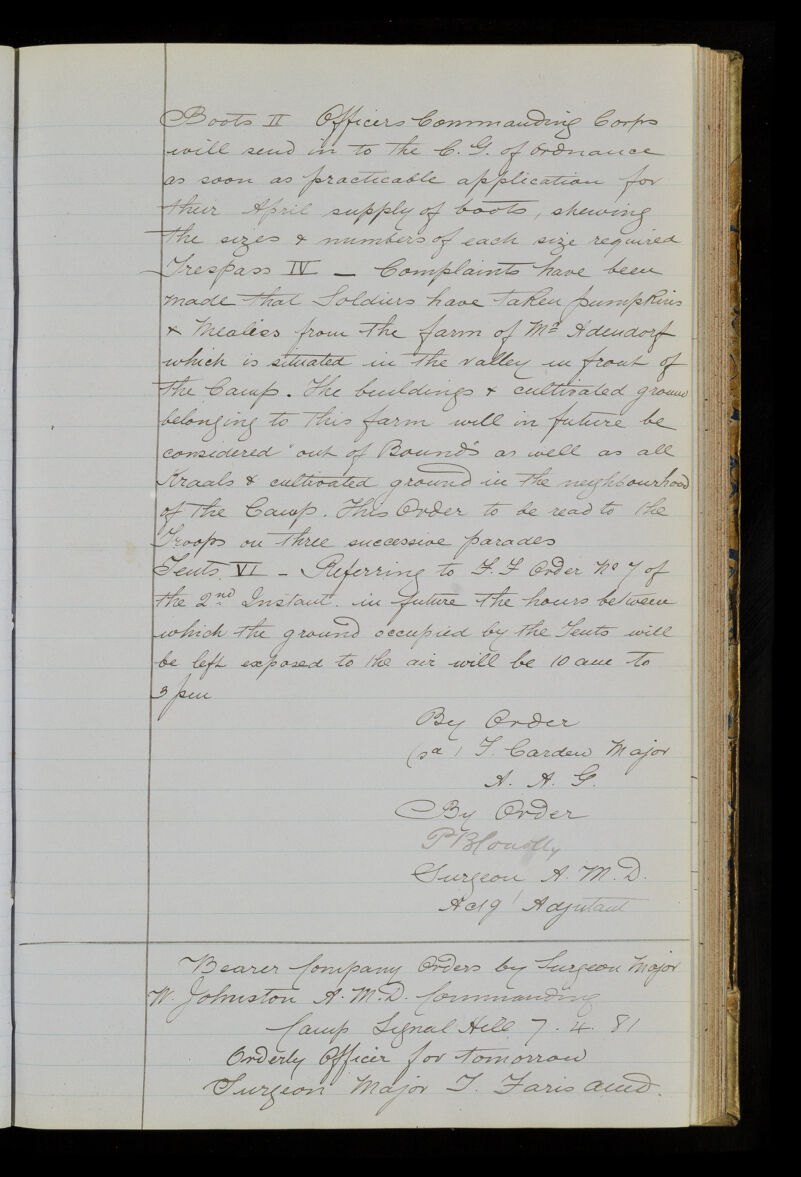 Boots II Officers Commanding Corps
will send in to the C. G. of Ordnance
as soon as practicable application for
their April supply of boots, shewing
the sizes & numbers of each size required
Trespass IV — Complaints have been
made that Soldiers have taken pumpkins
& Mealies from the farm of Mr Adendorf
which is situated in the valley in front of
the Camp. The buildings & cultivated ground
belonging to this farm will in future be
considered "out of Bounds" as well as all
Kraals & cultivated ground in the neighbourhood
of the Camp. This Order to be read to the
Troops on three successive parades
Tents VI – Referring to F. F Order No 7 of
the 2nd Instant. in future the hours between
which the ground occupied by the Tents will
be left exposed to the air will be 10 am to
3 pm
By Order
(sd) Carden Major
A. A. G.
By Order
P B Conolly
Surgeon A. M. D.
Actg Adjutant
Bearer Company Orders by Surgeon Major
W. Johnston A. M. D. Commanding
Camp Signal Hill 7. 4. 81
Orderly Officer for tomorrow
Surgeon Major Faris amd.